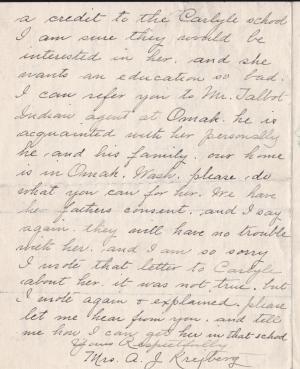 a credit to the Carlyle school
I am sure they would be
interested in her. and she
wants an education so bad.
I can refer you to Mr. Talbot
Indian agent at Omak. he is
acquainted with her personally
he. and his family. our home
is in Omak. Wash. please. do
what you can for her. We have
her fathers consent. and I say
again. they will have no trouble
with her. and I am so sorry
I wrote that letter to Carlyle
about her. it was not true. but
I wrote again & explained. please
let me hear from you. and tell
me how I can get her in that school
Yours Respectfully
Mrs. A. J. Kreyberg